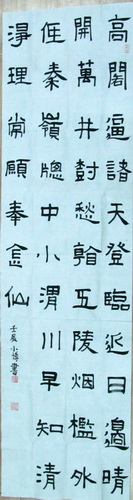 高閣逼諸天登臨近日邊晴
開萬井樹愁看五陵烟檻外
低秦嶺牕中小渭川早知清
淨理常願奉金仙
壬辰小博書